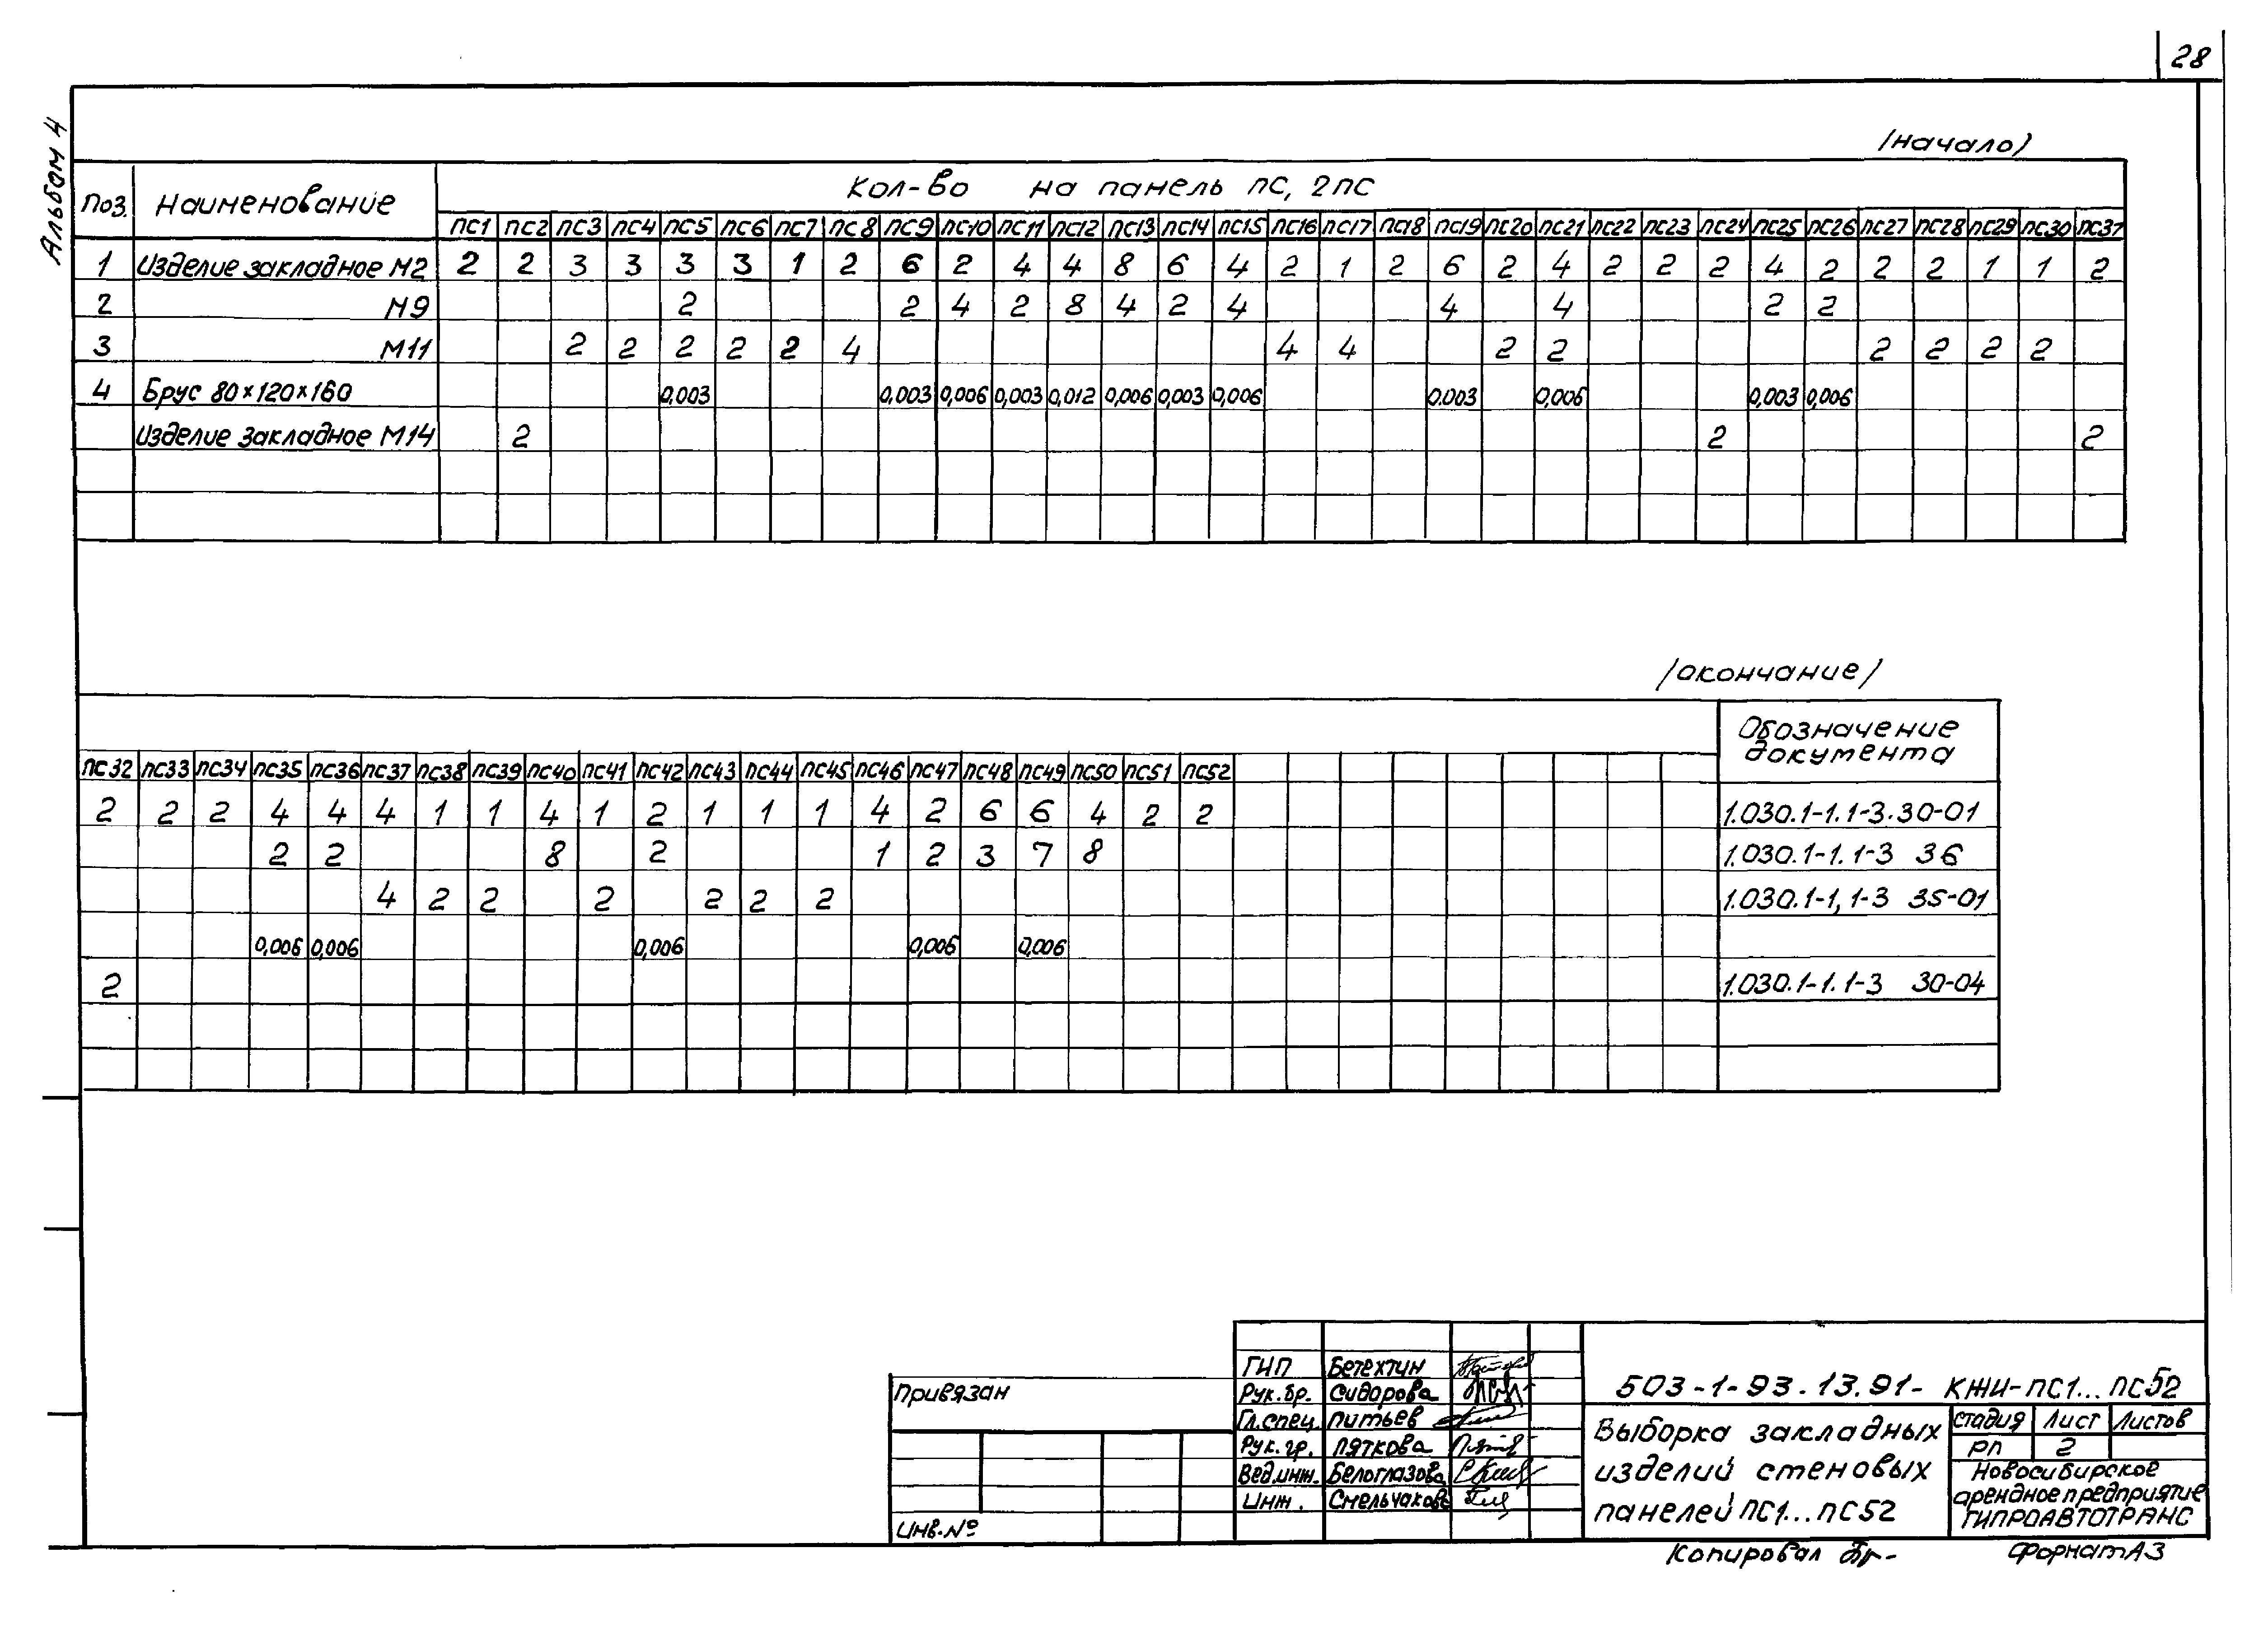 28
Альбом 4
/начало)
Поз. Наименование Кол-во на панель ПС, 2ПС
ПС1 ПС2 ПС3 ПС4 ПС5 ПС6 ПС7 ПС8 ПС9 ПС10 ПС11 ПС12 ПС13 ПС14 ПС15 ПС16 ПС17 ПС18 ПС19 ПС20 ПС21 ПС22 ПС23 ПС24 ПС25 ПС26 ПС27 ПС28 ПС29 ПС30 ПС31
1 Изделие закладное М2 2 2 3 3 3 3 1 2 6 2 4 4 8 6 4 2 1 2 6 2 4 2 2 2 4 2 2 2 1 1 2
2 М9 2 2 4 2 8 4 2 4 4 4 2 2
3 М11 2 2 2 2 2 4 4 4 2 2 2 2 2 2
4 Брус 80×120×160 0,003 0,003 0,006 0,003 0,012 0,006 0,003 0,006 0.003 0,006 0,003 0,006
Изделие закладное М14 2 2 2
/окончание/
Обозначение
документа
ПС32 ПС33 ПС34 ПС35 ПС36 ПС37 ПС38 ПС39 ПС40 ПС41 ПС42 ПС43 ПС44 ПС45 ПС46 ПС47 ПС48 ПС49 ПС50 ПС51 ПС52
2 2 2 4 4 4 1 1 4 1 2 1 1 1 4 2 6 6 4 2 2 1.030.1-1.1-3.30-01
2 2 8 2 1 2 3 7 8 1.030.1-1.1-3 36
4 2 2 2 2 2 2 1.030.1-1,1-3 35-01
0,006 0,006 0,006 0,006 0,006
2 1.030.1-1.1-3 30-04
Привязан
Инв.№
ГИП Бетехтин
Рук.бр. Сидорова
Гл.спец. Питьев
Рук.гр. Пяткова
Вед.инж. Белоглазова
Инж. Смельчакова
503-1-93.13.91- КЖИ-ПС1...ПС52
Выборка закладных
изделий стеновых
панелей ПС1...ПС52
Стадия Лист Листов
РП 2
Новосибирское
арендное предприятие
ГИПРОАВТОТРАНС
Копировал
Формат А3